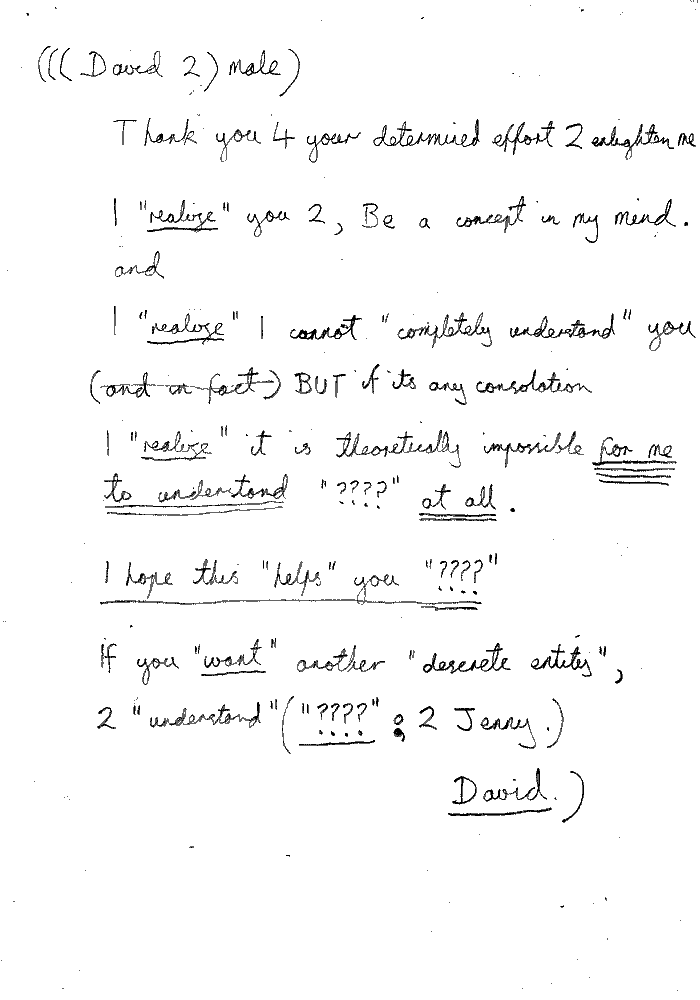 (((David 2) male)
Thank you 4 your determined effort 2 enlighten me
I "realize" you 2, Be a concept in my mind.
and
I "realize" I cannot "completely understand" you
(and in fact) BUT if its any consolation
I "realize" it is theoretically impossible for me
to understand "????" at all.
I hope this "helps" you "????"
If you "want" another "descrete entity",
2 "understand" ("????" ; 2 Jenny.)
David.)